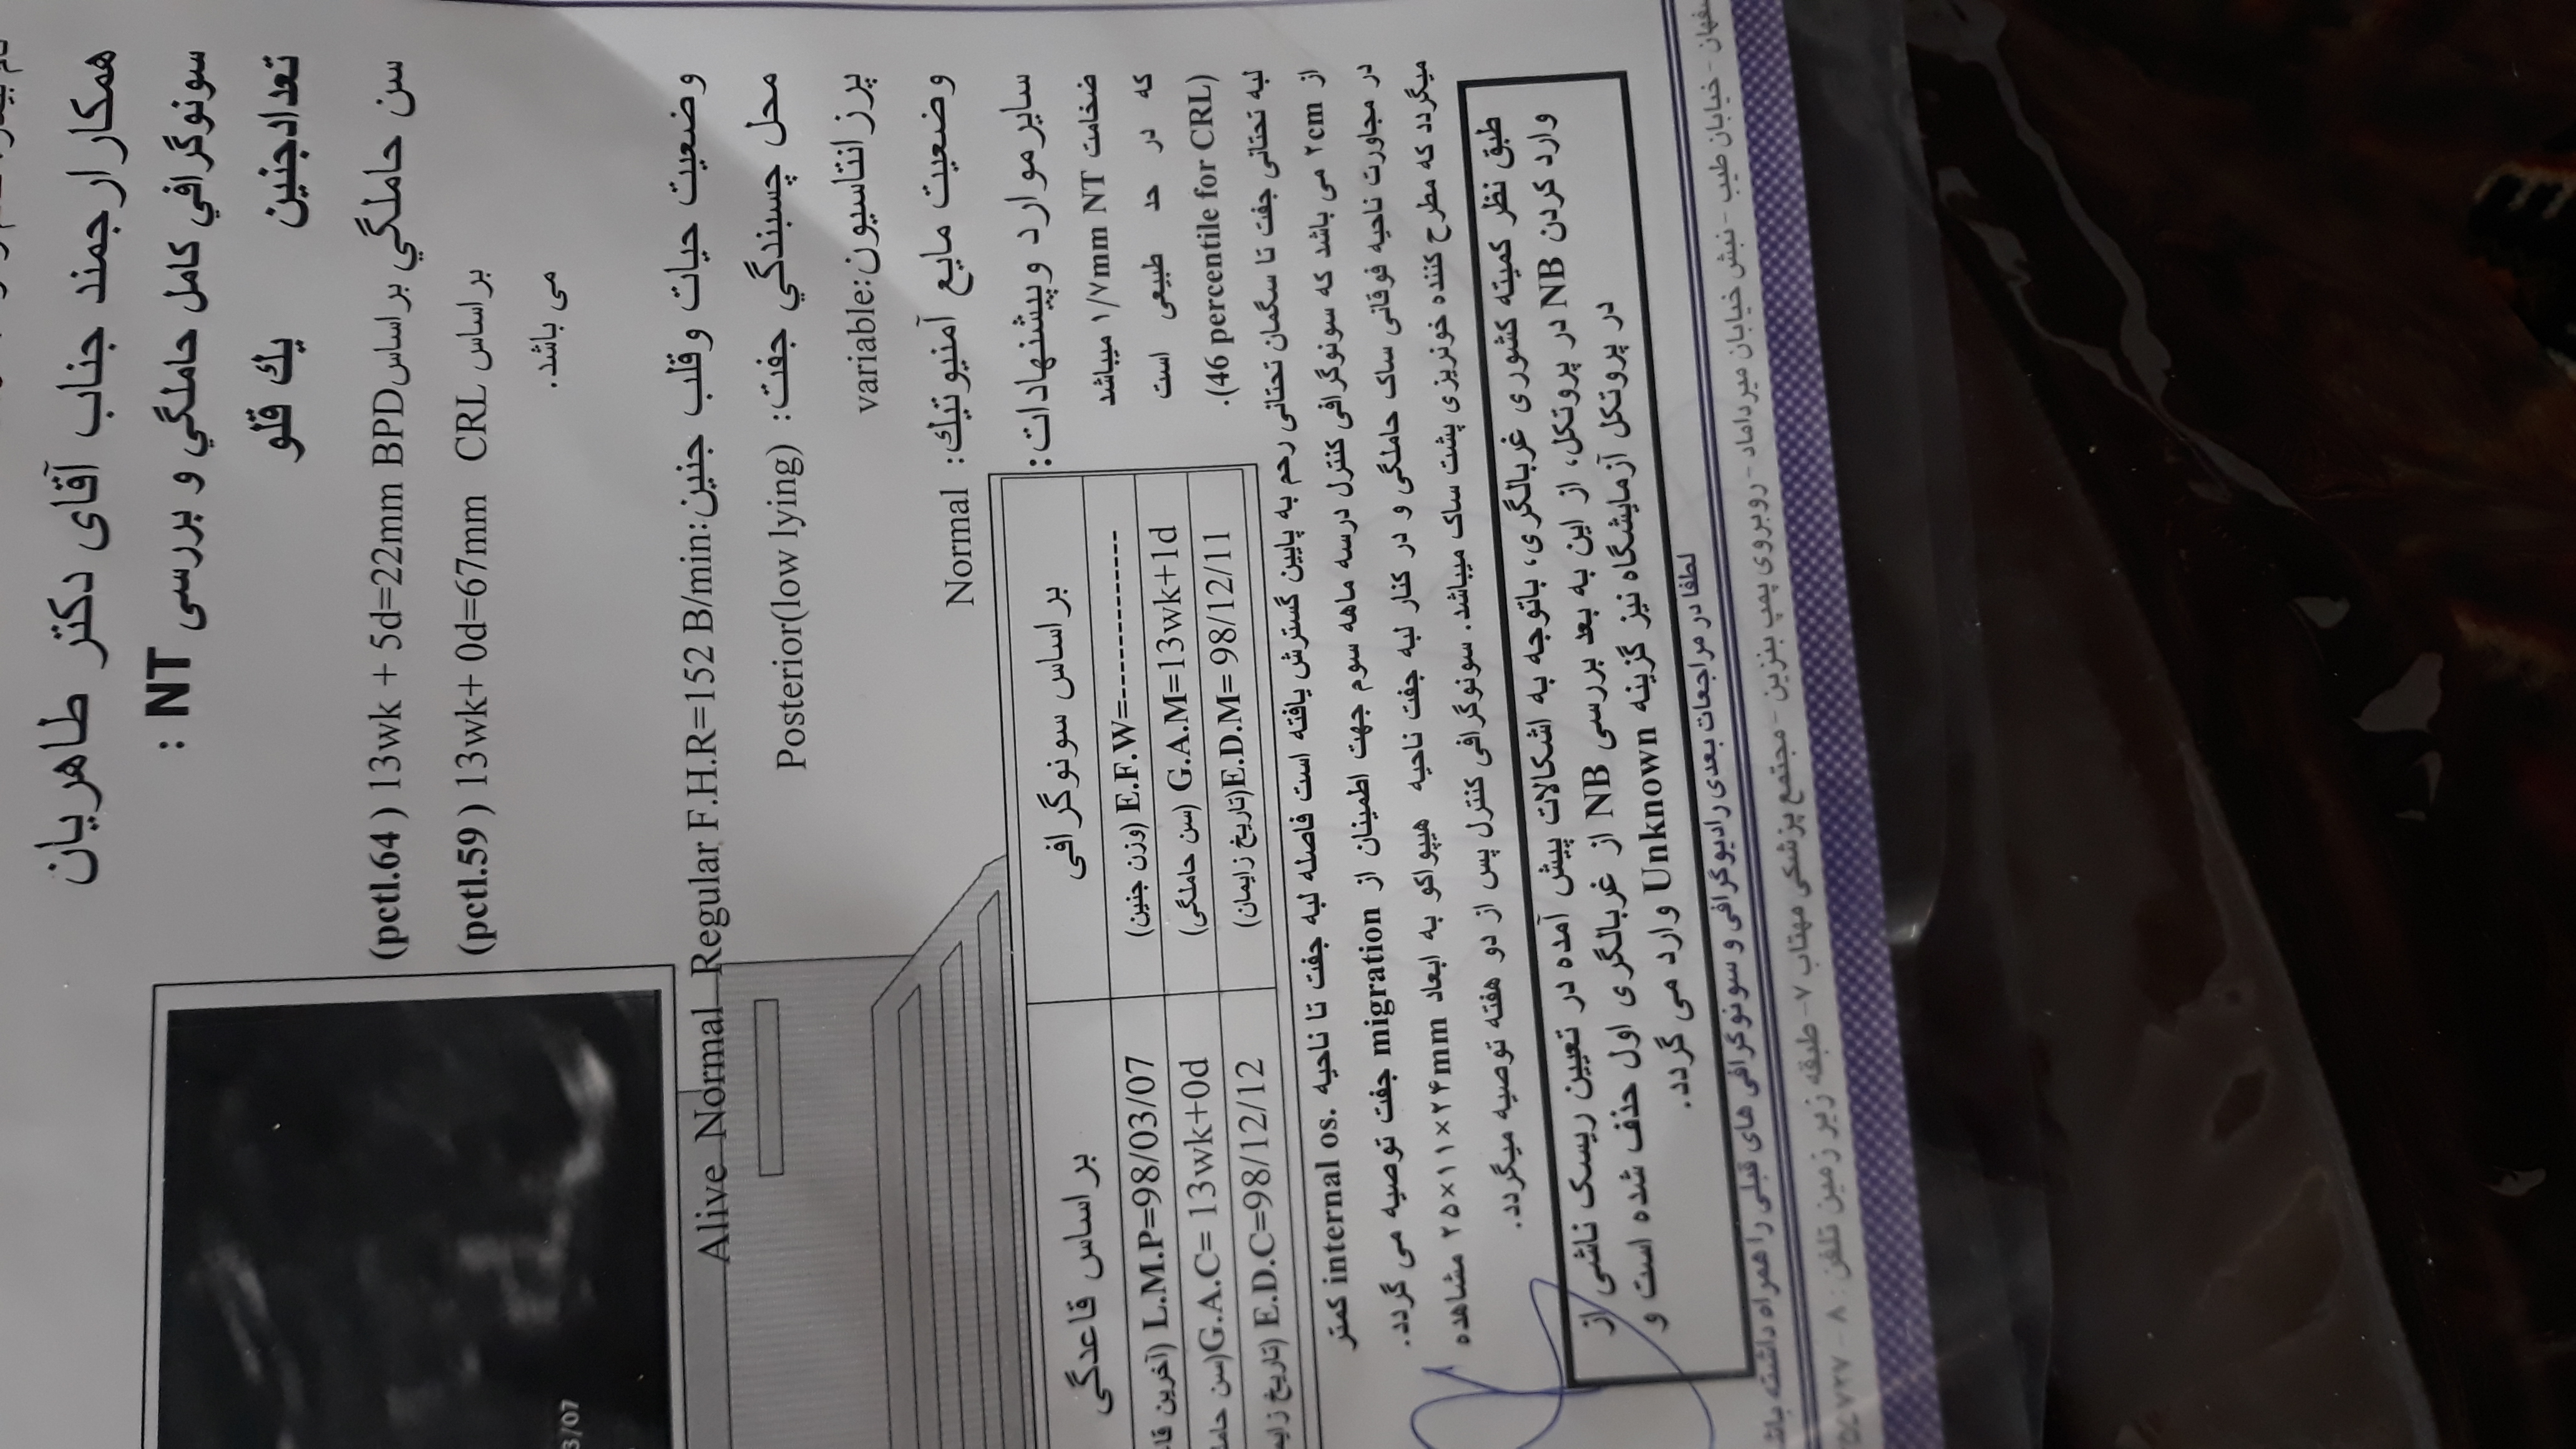 همکار ارجمند جناب آقای دکتر طاهریان
سونوگرافي کامل حاملگي و بررسی NT :
تعدادجنین یك قلو
سن حاملگي براساس BPD 22mm=13wk + 5d ( pctl.64)
بر اساس CRL 67mm=13wk+ 0d ( pctl.59)
می باشد.
وضعیت حیات وقلب جنین: Alive Normal Regular F.H.R=152 B/min
محل چسبندگي جفت: Posterior(low lying)
پرزانتاسیون: variable
وضعیت مایع آمنیوتیك: Normal
سایرموارد وپیشنهادات:
ضخامت NT ۱/۷mm میباشد
که در حد طبیعی است
(46 percentile for CRL).
بر اساس سونوگرافی
E.F.W=------------- (وزن جنین)
G.A.M=13wk+1d (سن حاملگی)
E.D.M= 98/12/11 (تاریخ زایمان)
بر اساس قاعدگی
L.M.P=98/03/07 (آخرین
G.A.C= 13wk+0d (سن
E.D.C=98/12/12 (تاریخ
لبه تحتانی جفت تا سگمان تحتانی رحم به پایین گسترش یافته است فاصله لبه جفت تا ناحیه internal os. کمتر
از ۲cm می باشد که سونوگرافی کنترل درسه ماهه سوم جهت اطمینان از migration جفت توصیه می گردد.
در مجاورت ناحیه فوقانی ساک حاملگی و در کنار لبه جفت ناحیه هیپواکو به ابعاد ۲۵×۱۱×۲۴mm مشاهده
میگردد که مطرح کننده خونریزی پشت ساک میباشد. سونوگرافی کنترل پس از دو هفته توصیه میگردد.
طبق نظر کمیته کشوری غربالگری، باتوجه به اشکالات پیش آمده در تعیین ریسک ناشی از
وارد کردن NB در پروتکل، از این به بعد بررسی NB از غربالگری اول حذف شده است و
در پروتکل آزمایشگاه نیز گزینه Unknown وارد می گردد.
لطفا در مراجعات بعدی رادیوگرافی و سونوگرافی های قبلی را همراه داشته
خیابان طیب - نبش خیابان میرداماد - روبروی پمپ بنزین - مجتمع پزشکی مهتاب ۷ - طبقه زیر زمین تلفن: ۸ -
3/07